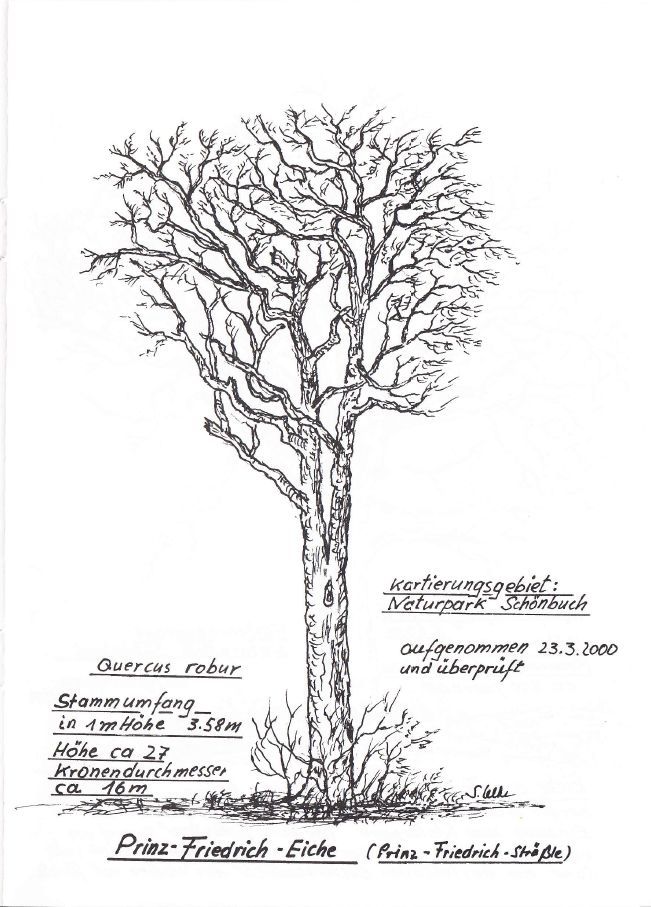 Kartierungsgebiet:
Naturpark Schönbuch
aufgenommen 23.3.2000
und überprüft
Quercus robur
Stammumfang
in 1m Höhe 3.58m
Höhe ca 27
Kronendurchmesser
ca 16m
Prinz-Friedrich-Eiche (Prinz-Friedrich-Sträßle)